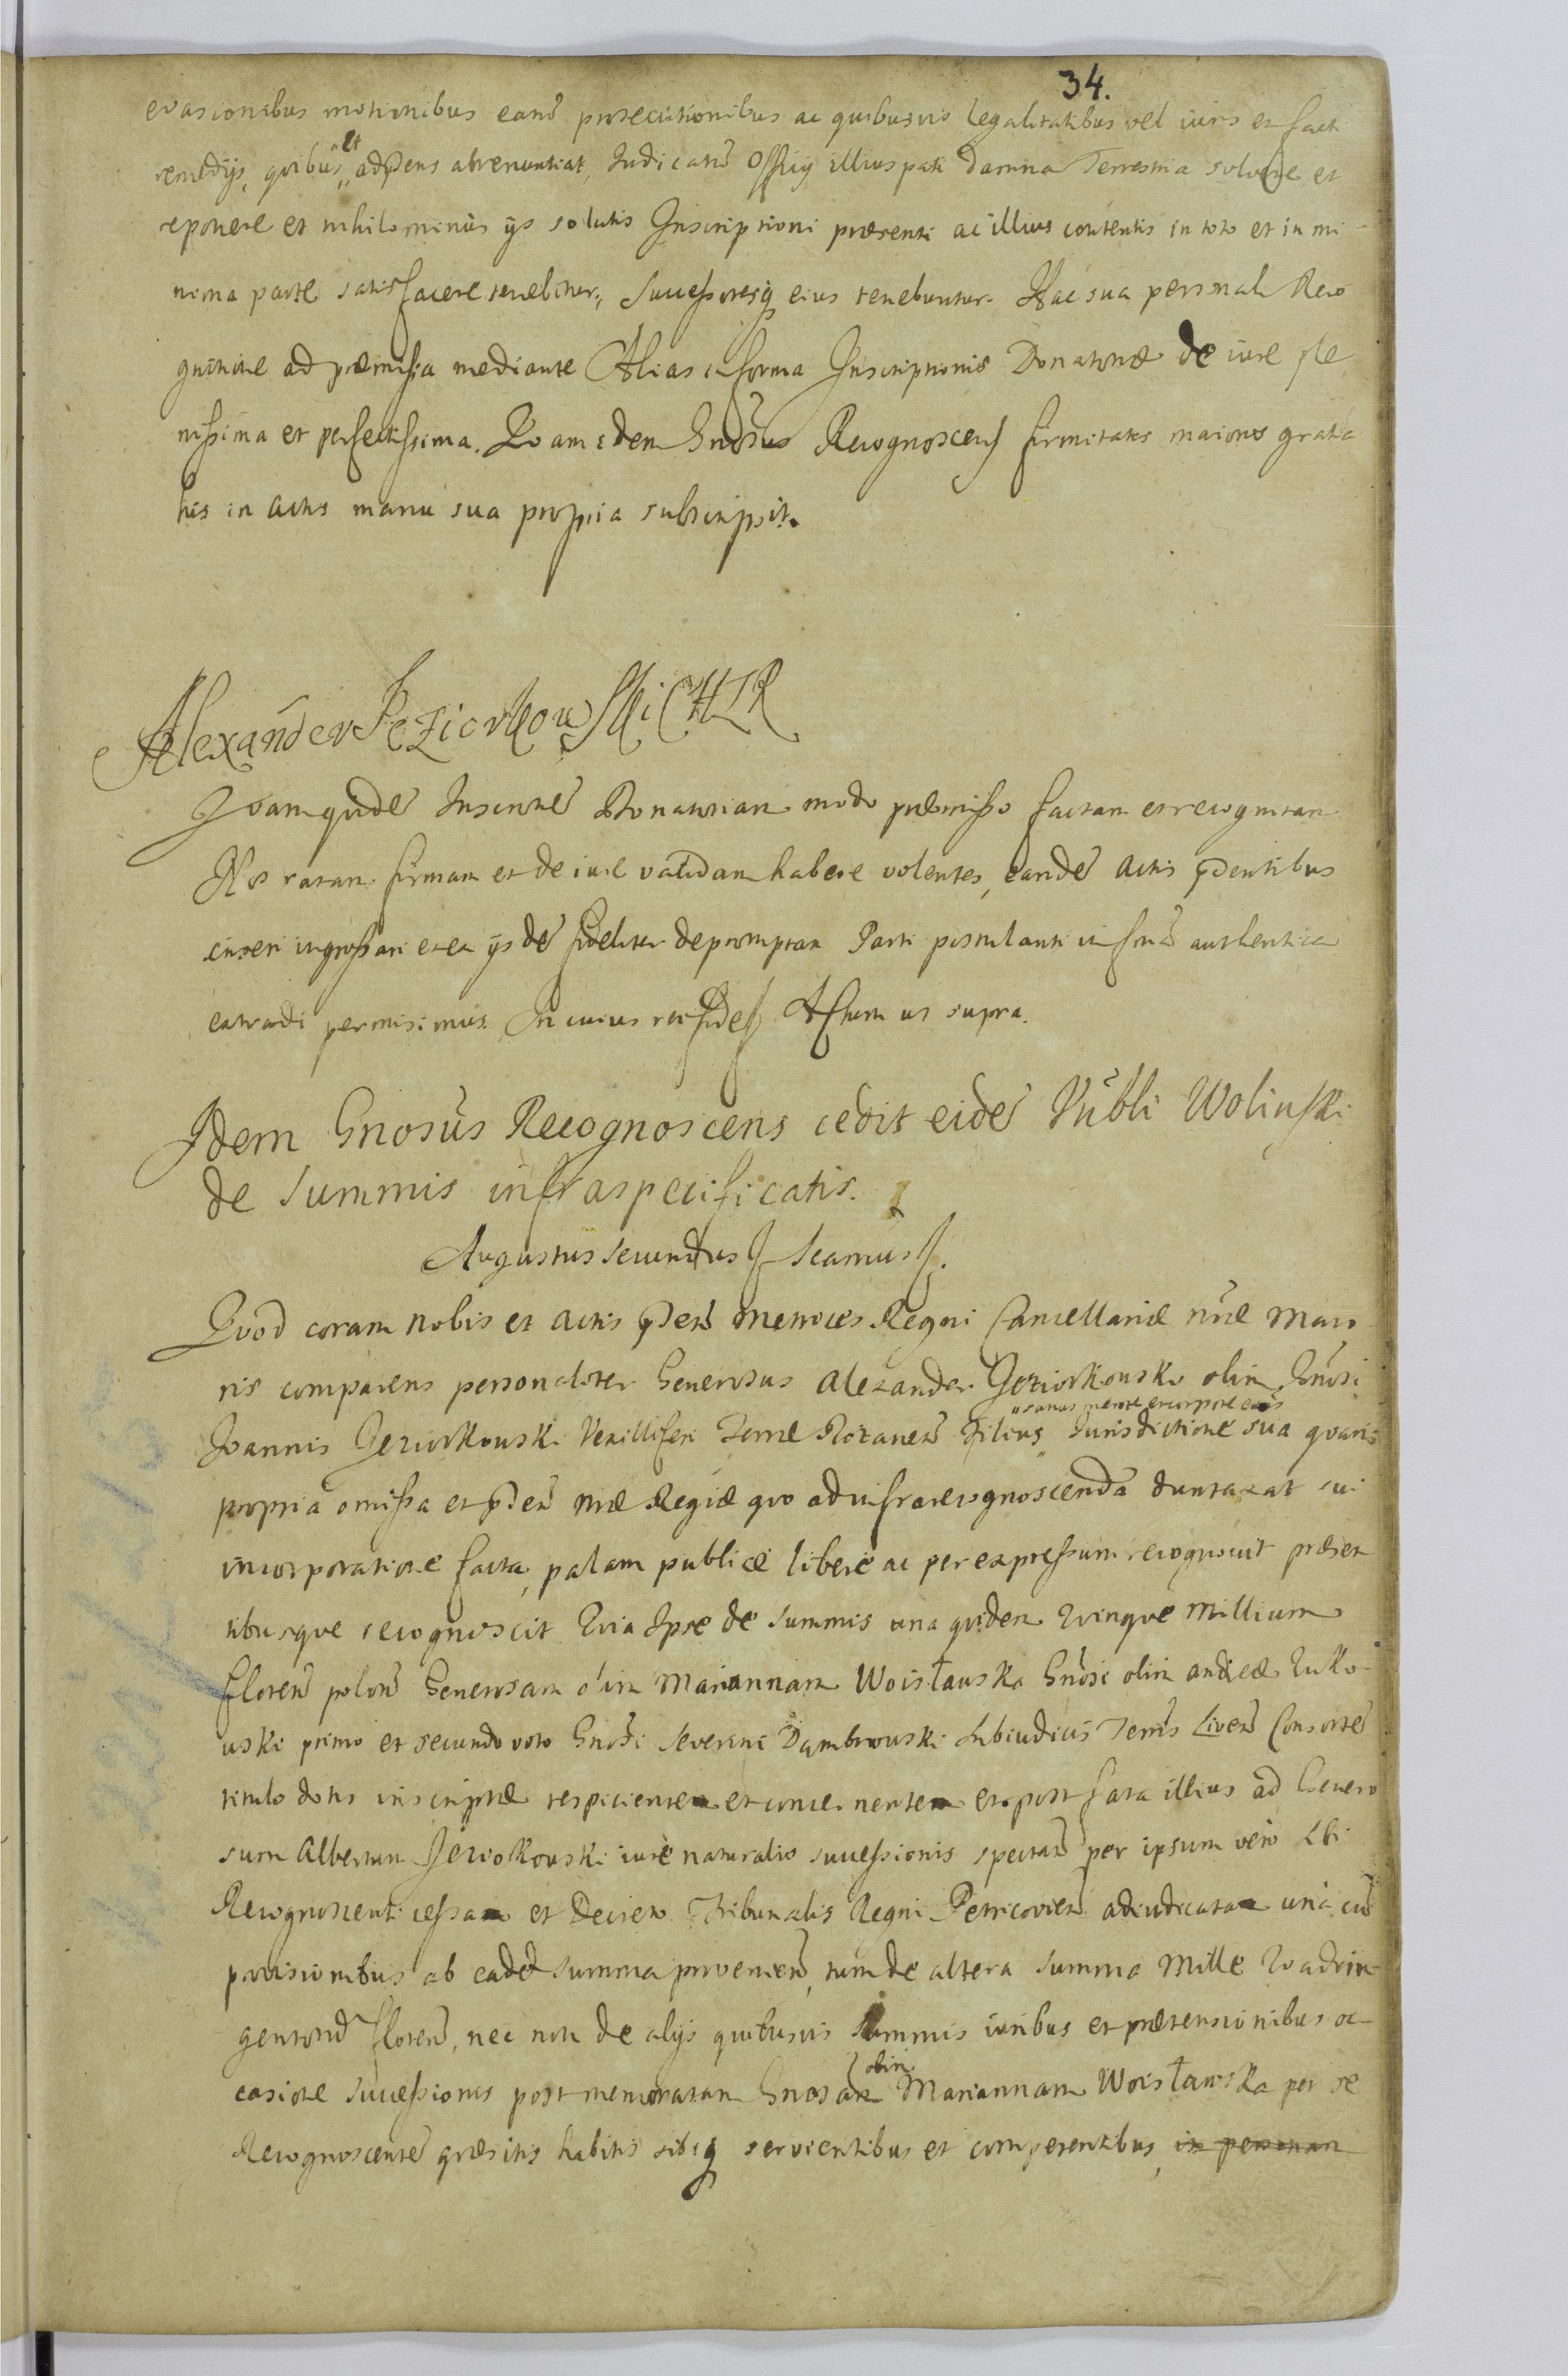 34.
evasionibus motionibus earũ prosecutionibus ac quibusvis legalitatibus vel iuris et facti
remedijs, quibus et adpñens abrenuntiat, Iudicatũ Officij illius pati damna Terrestria solvere et
reponere et nihilominus ijs solutis Inscriptioni præsenti ac illius contentis in toto et in mi-
nima parte satisfacere tenebitur, Successoresq; eius tenebuntur. Hac sua personali Reco
gnitione ad præmissa mediante Alias in forma Inscriptionis Donatoriæ de iure ple
nissima et perfectissima. Quam idem Gnosus Recognoscens firmitatis maioris gratia
his in actis manu sua propria subscripsit.
Alexander Jeziorkowski CHTR
Quam quidẽ Inscriptionẽ Donatoriam modo præmisso factam et recognitam
Nos ratam firmam et de iure validam habere volentes, eandẽ actis pñdentibus
inseri ingrossari et ex ijsdẽ fideliter depromptam Parti postulanti in formã authentica
extradi permisimus. In cuius rei fidẽ Actum ut supra.
Idem Gnosus Recognoscens cedit eidẽ Nubli Wolinski
de Summis infraspecificatis.
Augustus Secundus Seamus.
Quod coram nobis et actis pñdetũ Metrices Regni Cancellariæ nræ Maio
ris comparens personaliter Generosus Alexander Jeziorkouski olim Gnosi
Joannis Jeziorkouski Vexilliferi Terræ Rozanen̄ Filius, sanus mente et corpore ens Iurisdictione sua quavis
propria omissa et pñden̄ nræ Regiæ quo ad infrarecognoscenda duntaxat sui
incorporatione facta, palam publicé liberé ac per expressum recognovit præsen
tibusque recognoscit Quia Ipse de summis una quidem Quinque Millium
floren̄ polon̄ Generosam olim Mariannam Woisłauska Gnosi olim Andreæ Zuko-
uski primo et secundo voto Gnosi Severini Dąmbrouski Subiudicis Terrĩs Liven̄ Consortẽ
titulo dotis inscriptæ respiciente et concernente et post fata illius ad Genero
sum Albertum Jeziorkouski iure naturalis successionis spectan̄ per ipsum vero Sbi
Recognoscenti cessa et Decreto Tribunalis Regni Petricovien̄ adiudicata una cũ
provisionibus ab eadẽ summa provenien̄, tum de altera summa Mille Quadrin-
gentorũ floren̄, nec non de alijs quibusvis summis iuribus et prætensionibus oc-
casione successionis post memoratam Gnosam olim Mariannam Woisławska per se
Recognoscentẽ quæsitis habitis sibiq; servientibus et competentibus, in personam